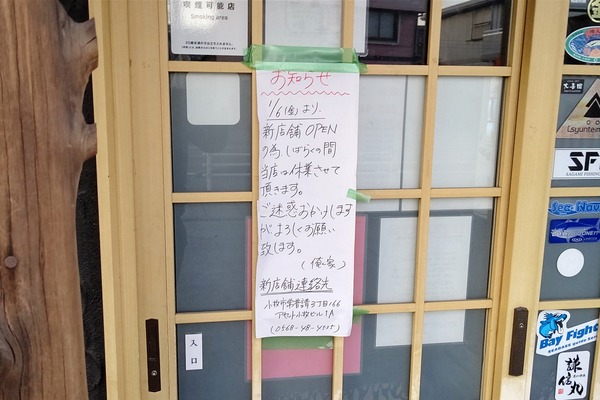 喫煙可能店
Smoking area
お知らせ
1/6(金)より、
新店舗OPEN
の為、しばらくの間
当店は休業させて
頂きます。
ご迷惑おかけします
がよろしくお願い
致します。
(俺家)
新店舗連絡先
小牧市常普請3丁目166
アセント小牧ビル1A
入口
大喜國
Isyuntei
SF
SAGAMI FISHING
Sea Nav
Bay Fight
謙信丸